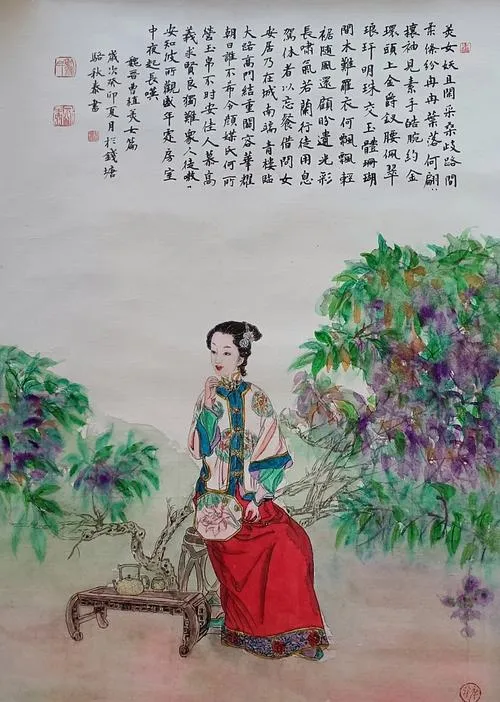 美女妖且閑采桑歧路間
柔條紛冉冉葉落何翩
攘袖見素手皓腕約金
環頭上金爵釵腰佩翠
琅玕明珠交玉體珊瑚
間木難羅衣何飄飄輕
裾隨風還顧盼遺光彩
長嘯氣若蘭行徒用息
駕休者以忘餐借問女
安居乃在城南端青樓臨
大路高門結重關容華耀
朝日誰不希令顏媒氏何所
營玉帛不時安佳人慕高
義求賢良獨難眾人徒嗷
安知彼所觀盛年處房室
中夜起長嘆
魏晉曹植美女篇
歲次癸卯夏月於錢塘
駱秋書